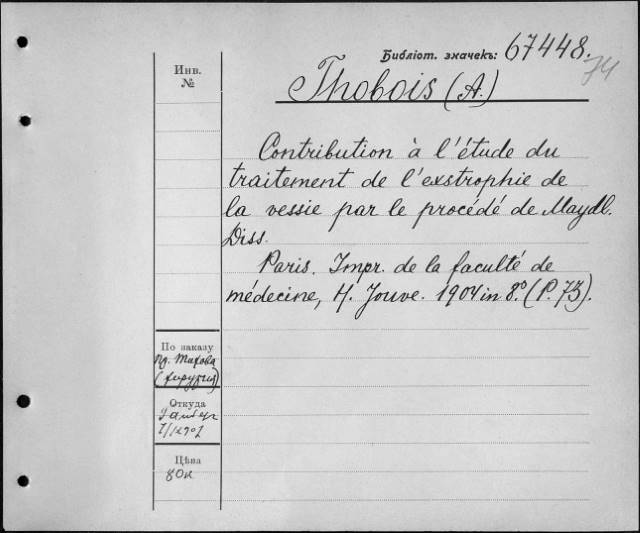 Библіот. значекъ: 67448.
74
Инв.
№
Thobois (A.)
Contribution à l'étude du
traitement de l'exstrophie de
la vessie par le procédé de Maydl.
Diss.
Paris. Impr. de la faculté de
médecine, H. Jouve. 1904 in 8.º (P. 73).
По заказу
(хирургія)
Откуда
Цѣна
80к